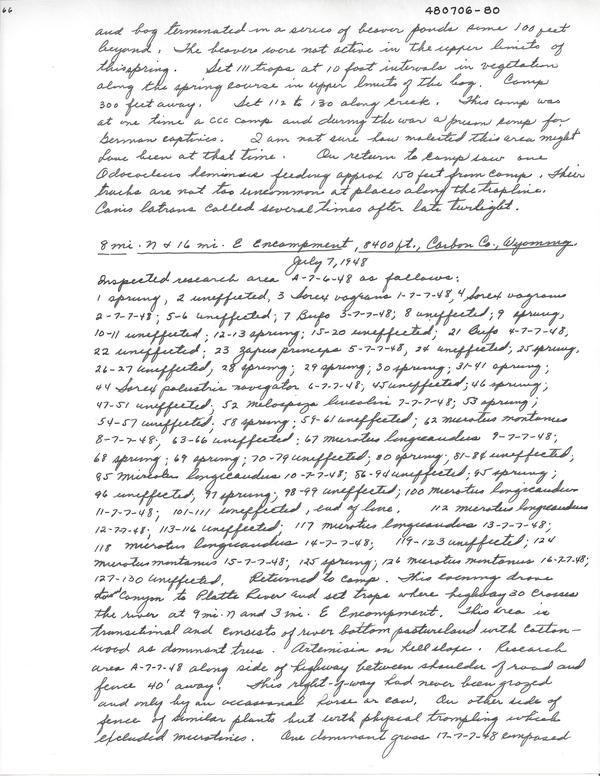 66
480706-80
and bog terminated in a series of beaver ponds some 100 feet
beyond. The beavers were not active in the upper limits of
this spring. Set 111 traps at 10 foot intervals in vegetation
along the spring course in upper limits of the bog. Camp
300 feet away. Set 112 to 130 along creek. This camp was
at one time a CCC camp and during the war a prison camp for
German captives. I am not sure how molested this area might
have been at that time. On return to camp saw one
Odocoileus hemionus feeding approx 150 feet from camp. Their
tracks are not too uncommon at places along the trapline.
Canis latrans called several times after late twilight.
8 mi. N & 16 mi. E Encampment, 8400 ft., Carbon Co., Wyoming
July 7, 1948
Inspected research area A-7-6-48 as follows:
1 sprung, 2 uneffected, 3 Sorex vagrans 1-7-7-48, 4 Sorex vagrans
2-7-7-48; 5-6 uneffected; 7 Bufo 3-7-7-48; 8 uneffected; 9 sprung,
10-11 uneffected; 12-13 sprung; 15-20 uneffected; 21 Bufo 4-7-7-48,
22 uneffected; 23 Zapus princeps 5-7-7-48, 24 uneffected; 25 sprung,
26-27 uneffected, 28 sprung; 29 sprung; 30 sprung; 31-41 sprung;
44 Sorex palustris navigator 6-7-7-48; 45 uneffected; 46 sprung;
47-51 uneffected; 52 Melospiza lincolni 7-7-7-48; 53 sprung;
54-57 uneffected; 58 sprung; 59-61 uneffected; 62 Microtus montanus
8-7-7-48; 63-66 uneffected; 67 Microtus longicaudus 9-7-7-48;
68 sprung; 69 sprung; 70-79 uneffected; 80 sprung; 81-84 uneffected;
85 Microtus longicaudus 10-7-7-48; 86-94 uneffected; 95 sprung;
96 uneffected, 97 sprung; 98-99 uneffected; 100 Microtus longicaudus
11-7-7-48; 101-111 uneffected, end of line. 112 Microtus longicaudus
12-7-7-48; 113-116 uneffected; 117 Microtus longicaudus 13-7-7-48;
118 Microtus longicaudus 14-7-7-48; 119-123 uneffected; 124
Microtus montanus 15-7-7-48; 125 sprung; 126 Microtus montanus 16-7-7-48;
127-130 uneffected. Returned to camp. This evening drove
Canyon to Platte River and set traps where highway 30 crosses
the river at 9 mi. N and 3 mi. E Encampment. This area is
transitional and consists of river bottom pastureland with cotton-
wood as dominant tree. Artemisia on hill slope. Research
area A-7-7-48 along side of highway between shoulder of road and
fence 40' away. This right-of-way had never been grazed
and only by an occasional horse or cow. On other side of
fence of similar plants but with physical trampling which
excluded microtines. One dominant grass 17-7-7-48 composed